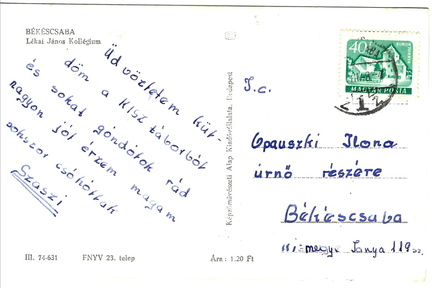 BÉKÉSCSABA
Lékai János Kollégium
Üdvözletem kül-
döm a KISZ táborból
és sokat gondolok rád
nagyon jól érzem magam
sokszor csókollak
Szaszi
III. 74-631
FNYV 23. telep
Ára: 1.20 Ft
Képzőművészeti Alap Kiadóvállalata, Budapest
40
MAGYAR POSTA
I.c.
Opauszki Ilona
úrnő részére
Békéscsaba
Tanya 119